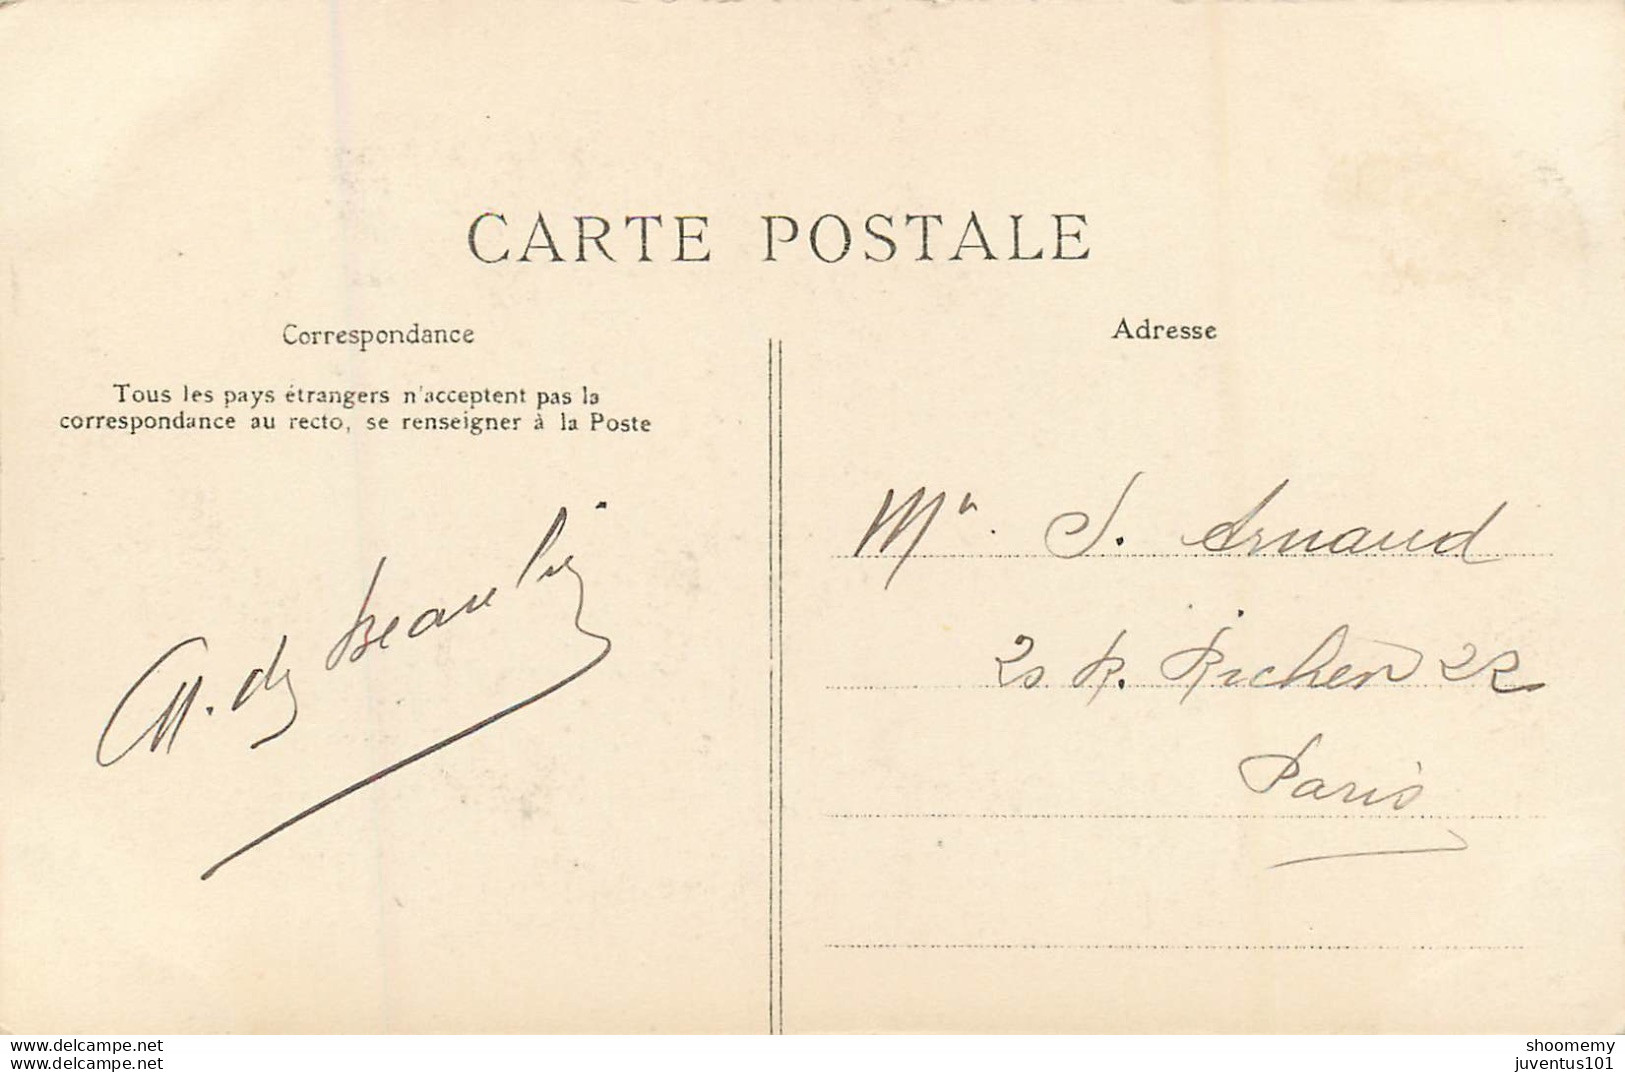 CARTE POSTALE
Correspondance
Tous les pays étrangers n'acceptent pas la
correspondance au recto, se renseigner à la Poste
M. de Beaulieu
Adresse
Mr. J. Arnaud
R. Richer 22
Paris
www.delcampe.net
www.delcampe.net
shoomemy
juventus101